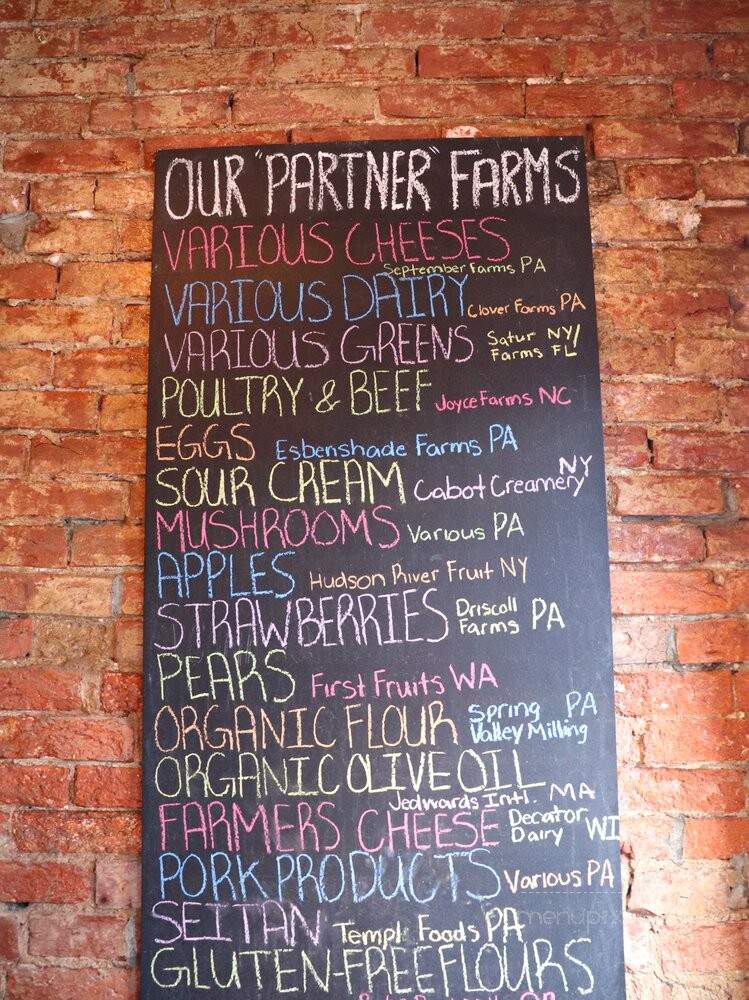 OUR "PARTNER" FARMS
VARIOUS CHEESES
September Farms PA
VARIOUS DAIRY Clover Farms PA
VARIOUS GREENS Satur NY/
Farms FL
POULTRY & BEEF Joyce Farms NC
EGGS Esbenshade Farms PA
NY
SOUR CREAM Cabot Creamery
MUSHROOMS Various PA
APPLES Hudson River Fruit NY
STRAWBERRIES Driscoll
Farms PA
PEARS First Fruits WA
ORGANIC FLOUR Spring PA
Valley Milling
ORGANIC OLIVE OIL
Jedwards Intl. MA
FARMERS CHEESE Decator
Dairy WI
PORK PRODUCTS Various PA
SEITAN Temple Foods PA
GLUTEN-FREE FLOURS